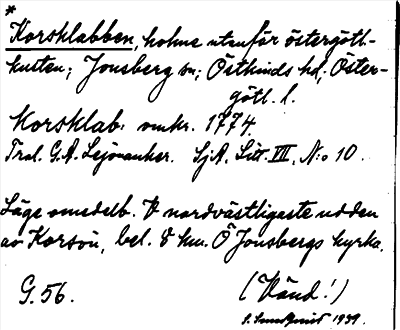 *
Korsklabben, holme utanför östergötl.-
kusten; Jonsberg sn; Östkinds hd, Öster-
götl. l.
Korsklab: omkr. 1774.
Trol. G.A. Lejonanker. SjA. Litt. VII, N:o 10.
Läge omedelb. V nordvästligaste udden
av Korsön, bel. 8 km. Ö Jonsbergs kyrka.
G. 56. (Vänd!)
S. Sundquist 1939.